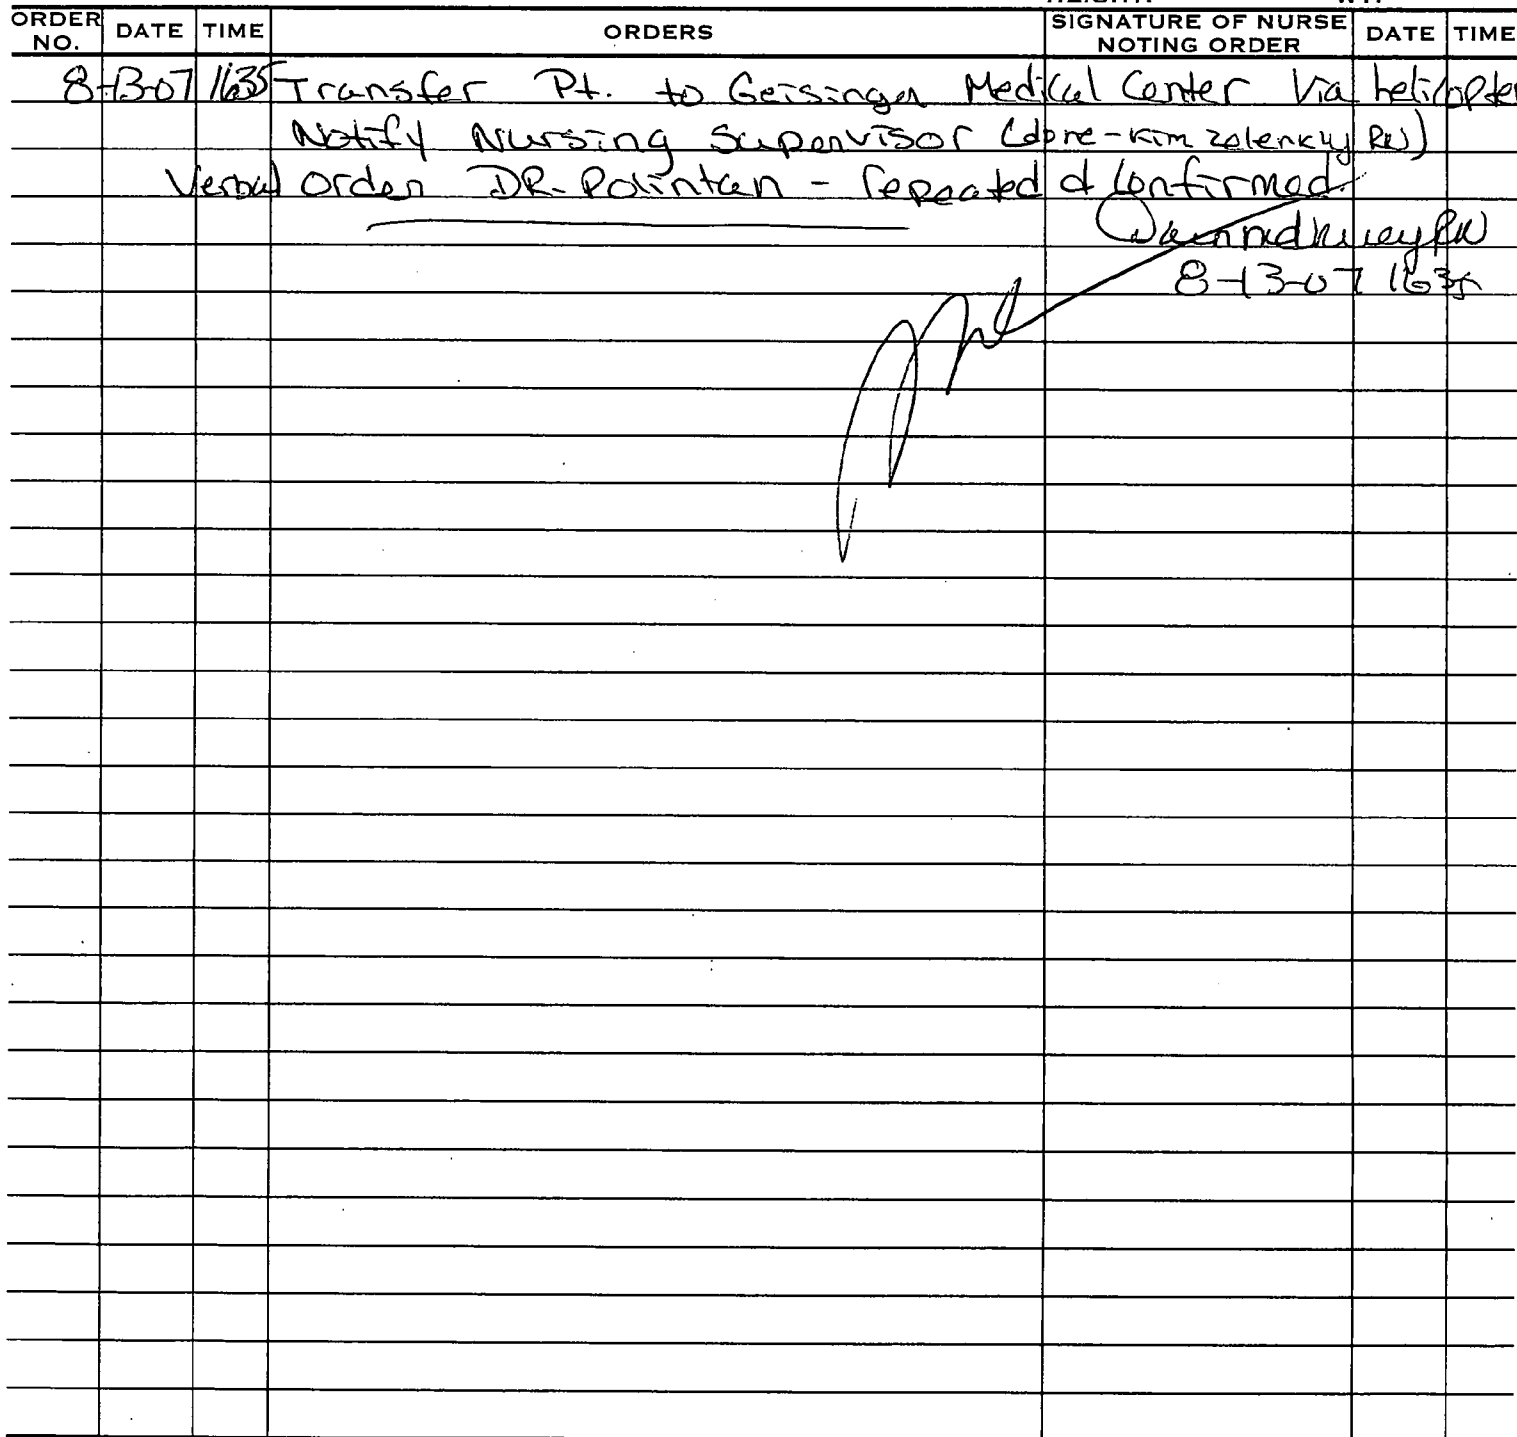 ORDER NO. DATE TIME ORDERS SIGNATURE OF NURSE NOTING ORDER DATE TIME
8-13-07 1635 Transfer Pt. to Geisinger Medical Center Via helicopter
Notify Nursing Supervisor (done - Kim Zelenky RN)
Verbal Order DR. Polintan - repeated & Confirmed
RN
8-13-07 1635